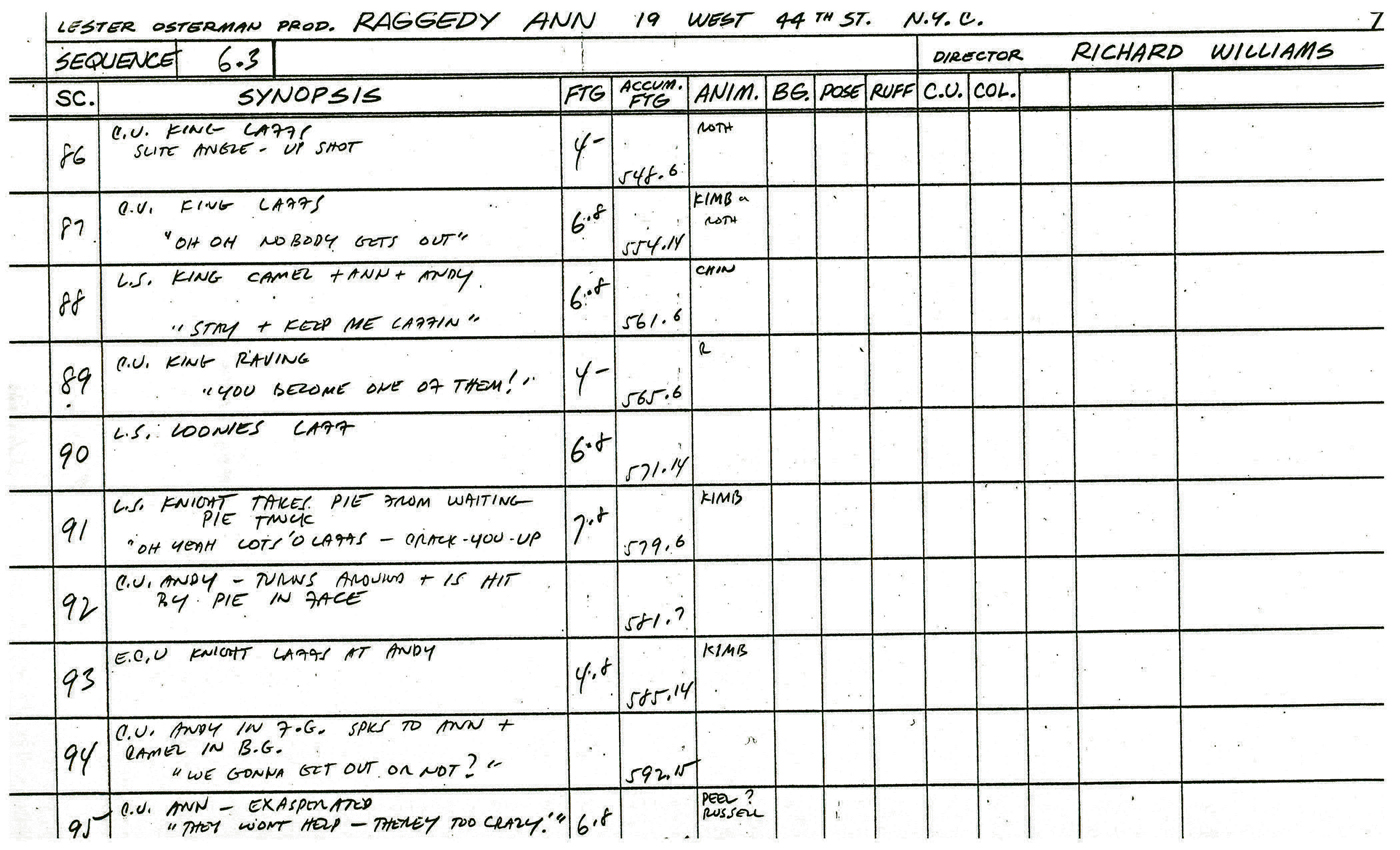 LESTER OSTERMAN PROD. RAGGEDY ANN 19 WEST 44TH ST. N.Y.C. 7
SEQUENCE 6.3 DIRECTOR RICHARD WILLIAMS
SC. SYNOPSIS FTG ACCUM. FTG ANIM. BG. POSE RUFF C.U. COL.
86 C.U. KING LAFFS 4- ROTH
SLITE ANGLE - UP SHOT
548.6
87 C.U. KING LAFFS 6.8 KIMB
ROTH
"OH OH NOBODY GETS OUT" 554.14
88 L.S. KING CAMEL + ANN + ANDY 6.8 CHIN
"STAY + KEEP ME LAFFIN" 561.6
89 C.U. KING RAVING 4- R
"YOU BECOME ONE OF THEM!" 565.6
90 L.S. LOONIES LAFF 6.8
571.14
91 L.S. KNIGHT TAKES PIE FROM WAITING 7.8 KIMB
PIE TRUCK
"OH YEAH LOTS'O LAFFS - CRACK-YOU-UP 579.6
92 C.U. ANDY - TURNS AROUND + IS HIT
BY PIE IN FACE
581.7
93 E.C.U KNIGHT LAFFS AT ANDY 4.8 KIMB
585.14
94 C.U. ANDY IN F.G. SPKS TO ANN +
CAMEL IN B.G.
"WE GONNA GET OUT OR NOT?" 592.15
95 C.U. ANN - EXASPERATED 6.8 PEEL ?
"THEY WONT HELP - THEREY TOO CRAZY!" RUSSELL